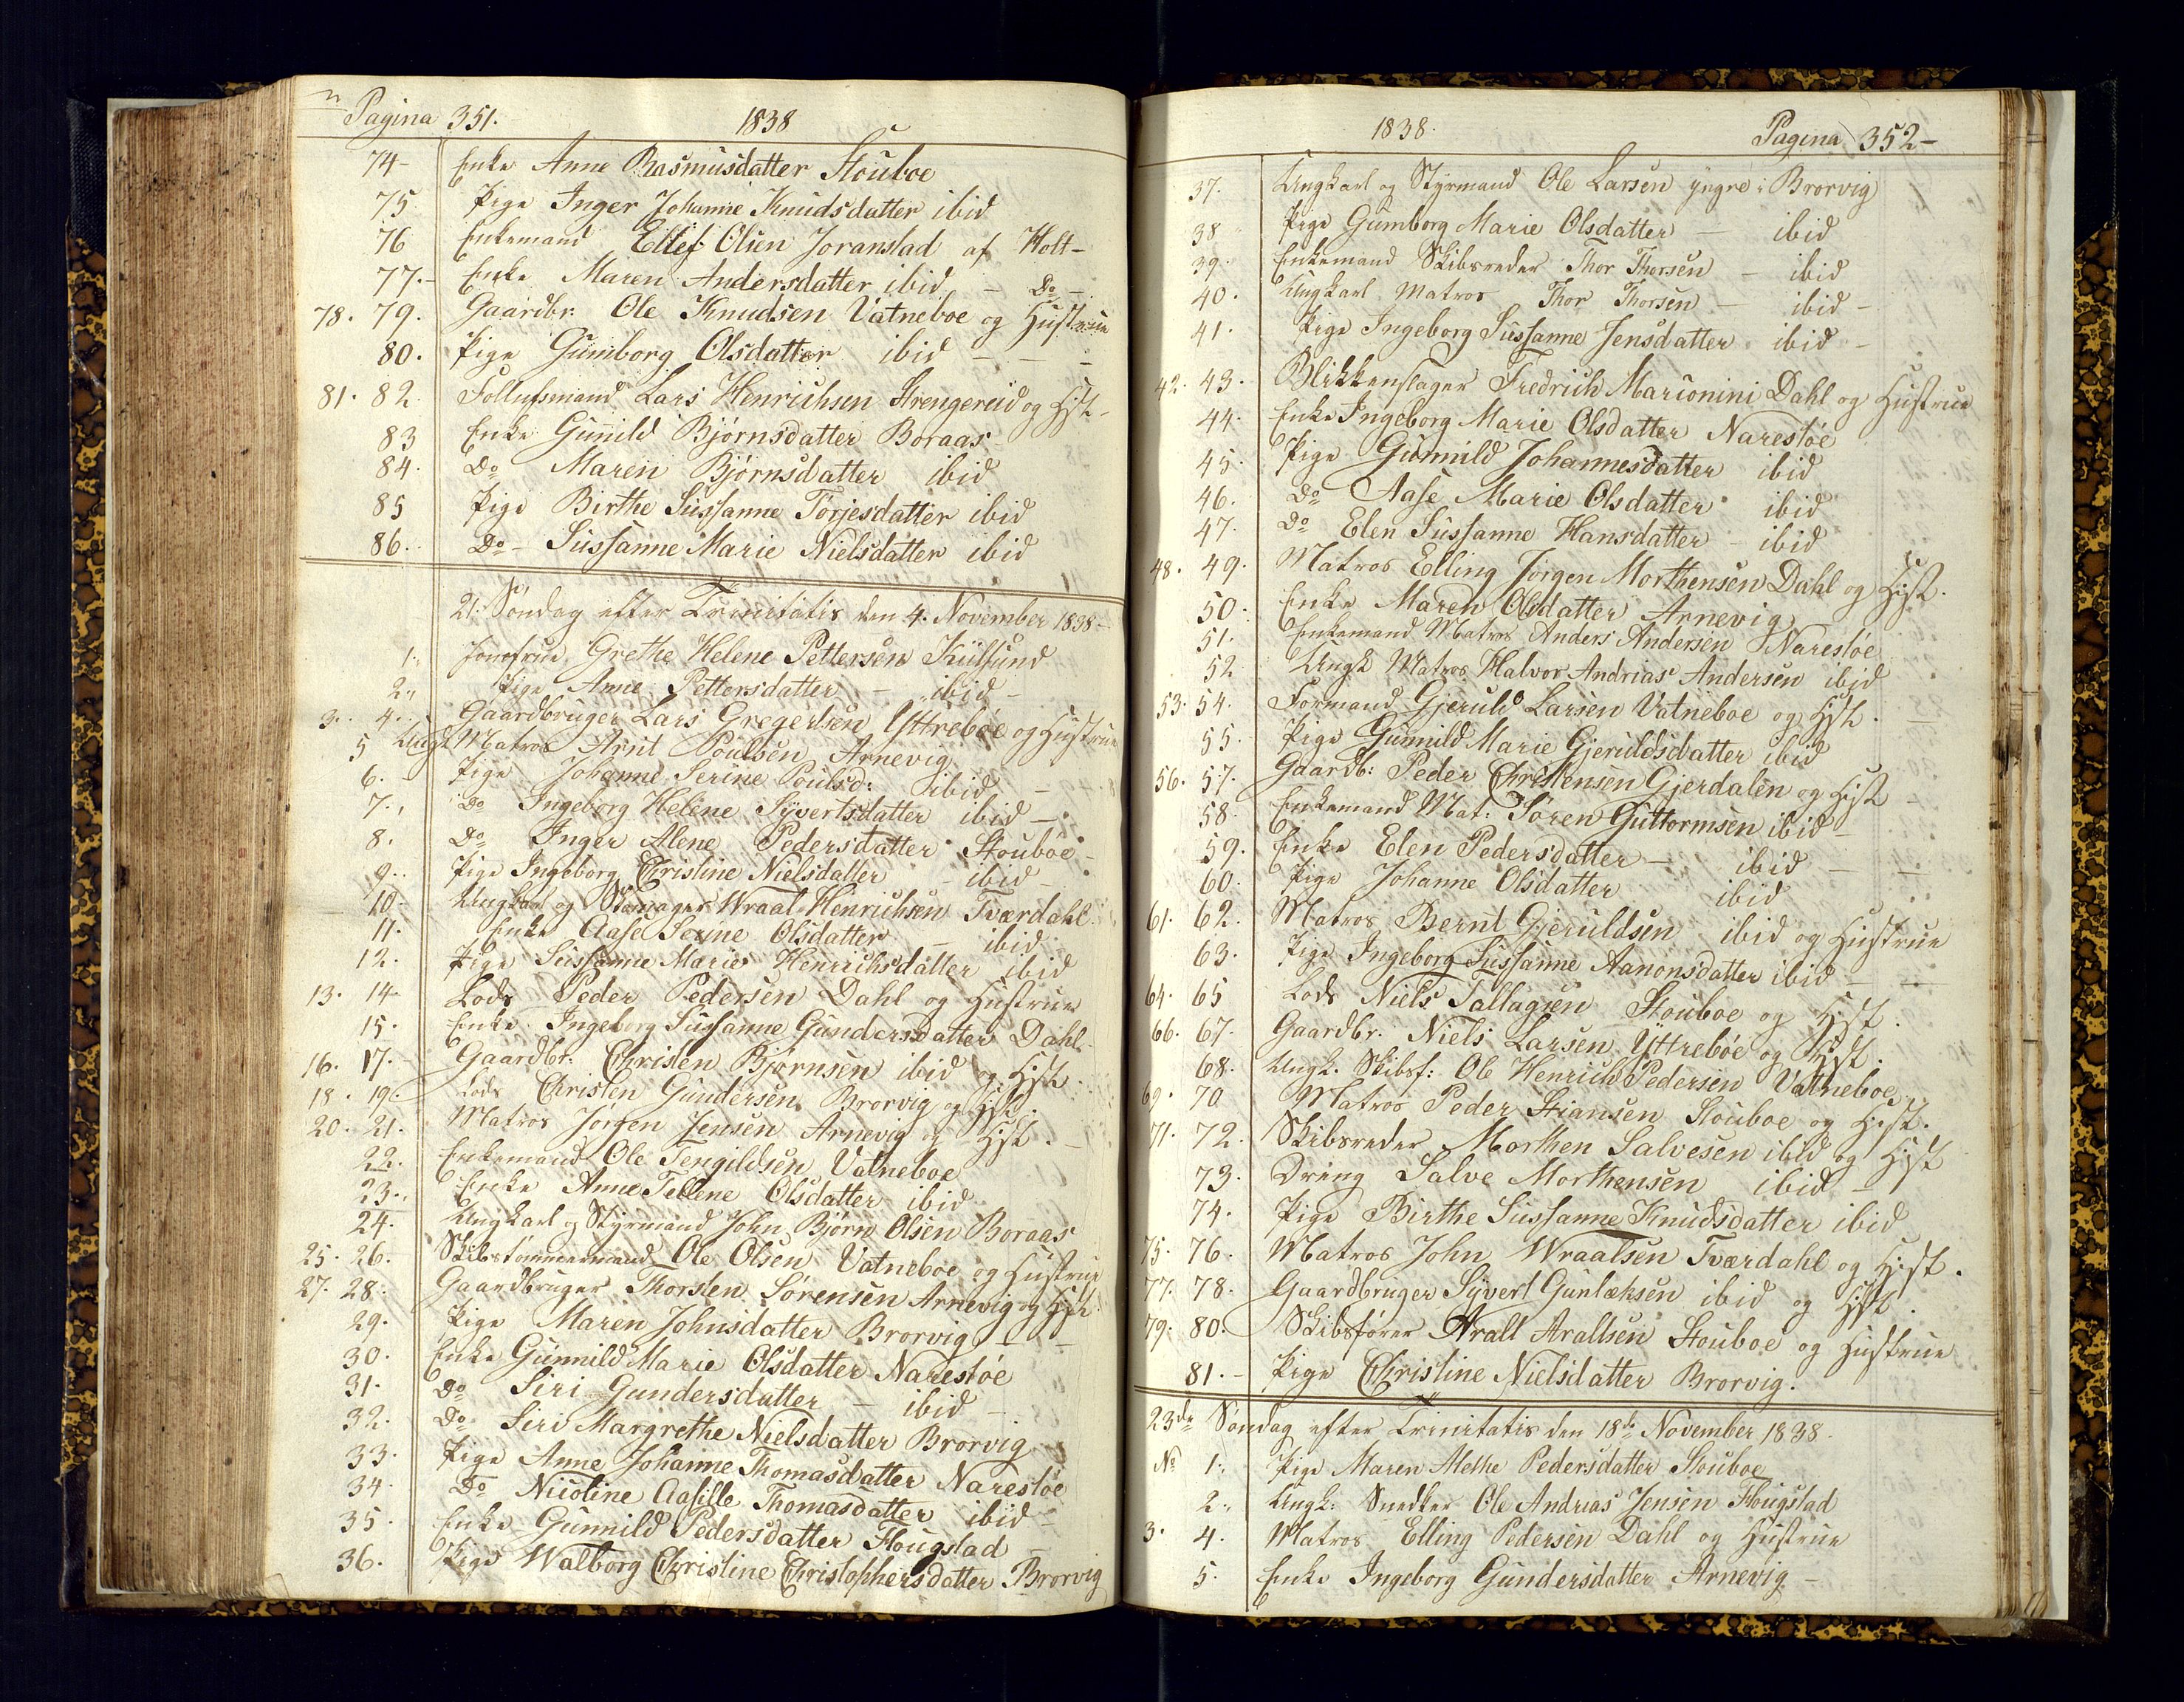 Pagina 351. 1838
74 Enke Anne Rasmusdatter Stouboe
75 Pige Inger Johanne Knudsdatter ibid
76 Enkemand Ellef Olsen Joranstad af Holt-
77.- Enke Maren Andersdatter ibid - Do -
78. 79. Gaardbr. Ole Knudsen Vatneboe og Hustrue
80. Pige Gumborg Olsdatter ibid - -
81. 82 Lars Henrichsen Strengereid og Hst.
83 Enke Gunild Bjørnsdatter Boraas
84. Do Maren Bjørnsdatter ibid
85 Pige Birthe Sussanne Torjesdatter ibid
86. Do - Sussanne Marie Nielsdatter ibid
21. Søndag efter Trinitatis den 4. November 1838-
1. Jomfrue Grethe Helene Pettersen Kilsund
2. Pige Anne Pettersdatter - ibid -
3. 4. Gaardbruger Lars Gregersen Yttrebøe og Hustrue
5 Ungk Matros Arnt Poulsen Arnevig
6. Pige Johanne Serine Poulsd: ibid -
7. Do Ingeborg Helene Syvertsdatter ibid -
8. Do Inger Alene Pedersdatter Stouboe -
9. Pige Ingeborg Christine Nielsdatter - ibid -
10. Ungkarl og Wraal Henrichsen Tværdahl
11. Enke Aase Serine Olsdatter - ibid
12. Pige Sussanne Marie Henrichsdatter ibid
13. 14 Lods Peder Pedersen Dahl og Hustrue
15. Enke Ingeborg Sussanne Gundersdatter Dahl
16. 17. Gaardbr. Christen Bjørnsen ibid og Hst.
18. 19. Lods Christen Gundersen Brorvig og Hst.
20. 21. Matros Jørgen Jensen Arnevig og Hst. -
22. Enkemand Ole Tengildsen Vatneboe
23. Enke Anne Tellene Olsdatter ibid
24. Ungkarl og Styrmand John Bjørn Olsen Boraas
25. 26. Skibstømmermand Ole Olsen Vatneboe og Hustrue
27. 28. Gaardbruger Thorsten Sørensen Arnevig og Hst.
29. Pige Maren Johnsdatter Brorvig - -
30. Enke Gunnild Marie Olsdatter Narestøe
31. Do Siri Gundersdatter - ibid -
32. Do Siri Margrethe Nielsdatter Brorvig
33. Pige Anne Johanne Thomasdatter Narestøe
34. Do Nicoline Aasille Thomasdatter ibid -
35. Enke Gunnild Pedersdatter Flougstad
36. Pige Walborg Christine Christophersdatter Brorvig
1838. Pagina 352-
37. Ungkarl og Styrmand Ole Larsen yngre i Brorvig
38 Pige Gumborg Marie Olsdatter - ibid
39. Enkemand Skibsreder Thor Thorsen - ibid
40. Ungkarl Matros Thor Thorsen - ibid -
41. Pige Ingeborg Sussanne Jensdatter ibid -
42. 43. Blikkenslager Fredrich Marionini Dahl og Hustrue
44. Enke Ingeborg Marie Olsdatter Narestøe
45. Pige Gunnild Johannesdatter ibid
46. Do Aase Marie Olsdatter ibid
47. Do Elen Sussanne Hansdatter - ibid
48. 49. Matros Elling Jørgen Morthensen Dahl og Hst.
50. Enke Maren Olsdatter Arnevig
51. Enkemand Matros Anders Andersen Narestøe
52 Ungk Matros Halvor Andrias Andersen ibid
53. 54. Formand Gjeruld Larsen Vatneboe og Hst. -
55. Pige Gunnild Marie Gjeruldsdatter ibid
56. 57. Gaardb: Peder Christensen Gjerdalen og Hst
58. Enkemand Mat: Søren Guttormsen ibid -
59. Enke Elen Pedersdatter - ibid -
60. Pige Johanne Olsdatter ibid
61. 62. Matros Bernt Gjeruldsen ibid og Hustrue
63. Pige Ingeborg Sussanne Aanonsdatter ibid -
64. 65 Lods Niels Tallagsen Stouboe og Hst.
66. 67. Gaardbr. Niels Larsen Yttrebøe og Hst.
68. Ungk. Skibsf: Ole Henrich Pedersen Vatneboe
69. 70 Matros Peder Stiansen Stouboe og Hst.
71. 72. Skibsreder Morthen Salvesen ibid og Hst
73. Dreng Salve Morthensen ibid -
74. Pige Birthe Sussanne Knudsdatter ibid
75. 76. Matros John Wraalsen Tværdahl og Hst.
77. 78. Gaardbruger Syvert Gunlæksen ibid og Hst.
79. 80. Skibsfører Arall Arallsen Stouboe og Hustrue
81.- Pige Christine Nielsdatter Brorvig.
23de Søndag efter Trinitatis den 18de November 1838.
No 1. Pige Maren Methe Pedersdatter Stouboe
2. Ungk: Snedker Ole Andreas Jensen Flougstad
3. 4. Matros Elling Pedersen Dahl og Hustrue
5. Enke Ingeborg Gundersdatter Arnevig -